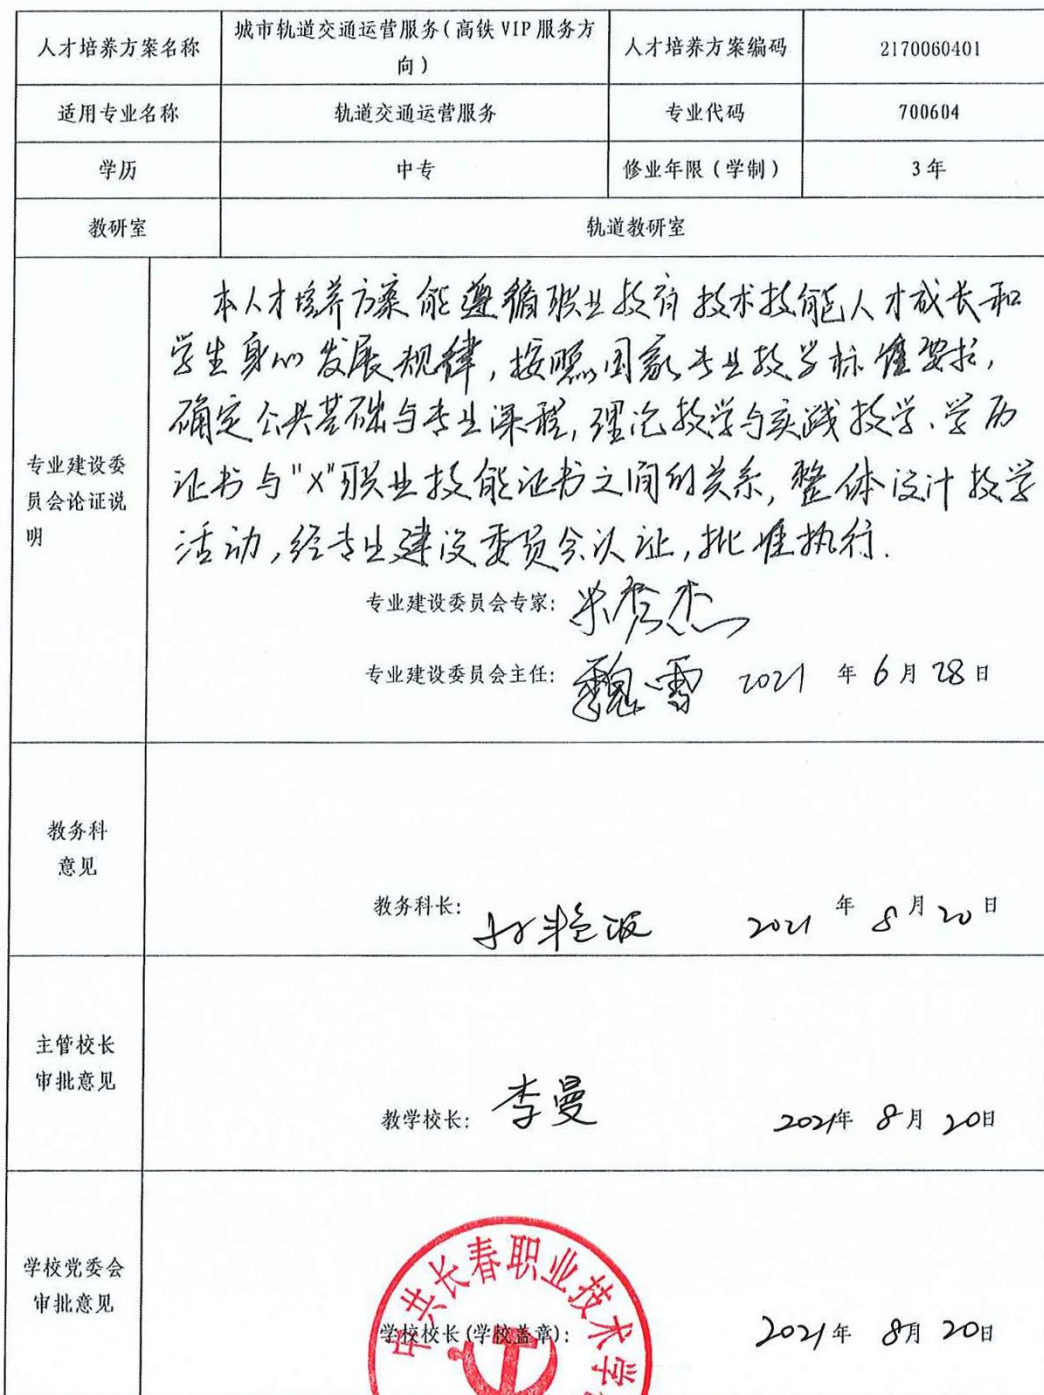 人才培养方案名称 城市轨道交通运营服务(高铁VIP服务方向) 人才培养方案编码 2170060401
适用专业名称 轨道交通运营服务 专业代码 700604
学历 中专 修业年限(学制) 3年
教研室 轨道教研室
专业建设委员会论证说明
本人才培养方案能遵循职业教育技术技能人才成长和
学生身心发展规律,按照国家专业教学标准要求,
确定公共基础与专业课程,理论教学与实践教学、学历
证书与"X"职业技能证书之间的关系,整体设计教学
活动,经专业建设委员会认证,批准执行.
专业建设委员会专家:
专业建设委员会主任: 魏雪 2021 年 6 月 28 日
教务科
意见
教务科长: 2021 年 8 月 20 日
主管校长
审批意见
教学校长: 李曼 2021年 8月 20日
学校党委会
审批意见
中共长春职业技术学
学校校长(学校盖章): 2021年 8月 20日